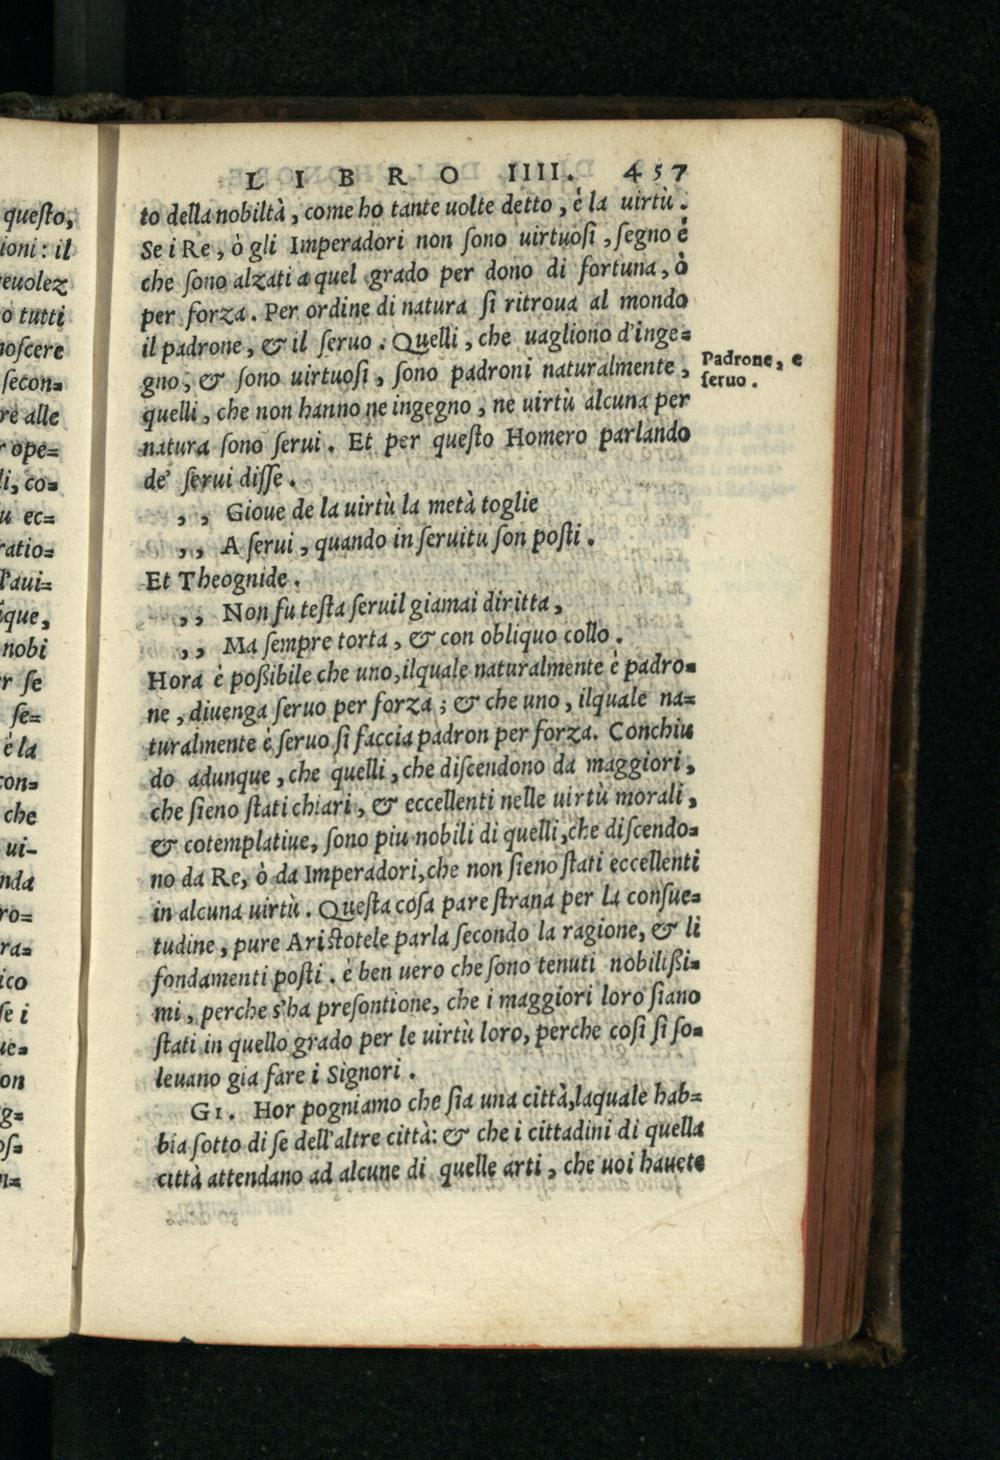 questo,
ioni: il
euolez
o tutti
noscere
secon=
re alle
r ope=
li, co=
u ec=
ratio=
l'aui=
que,
nobi
r se
se=
è la
con=
che
ui-
nda
ro=
ra=
ico
se i
ue=
on
g=
os=
n=
LIBRO IIII. 457
to della nobiltà, come ho tante uolte detto, è la uirtù.
Se i Re, ò gli Imperadori non sono uirtuosi, segno è
che sono alzati a quel grado per dono di fortuna, ò
per forza. Per ordine di natura si ritroua al mondo
il padrone, & il seruo. Quelli, che uagliono d'inge=
gno, & sono uirtuosi, sono padroni naturalmente,
quelli, che non hanno ne ingegno, ne uirtù alcuna per
natura sono serui. Et per questo Homero parlando
de' serui disse.
,, Gioue de la uirtù la metà toglie
,, A serui, quando in seruitu son posti.
Et Theognide.
,, Non fu testa seruil giamai diritta,
,, Ma sempre torta, & con obliquo collo.
Hora è poßibile che uno, ilquale naturalmente è padro=
ne, diuenga seruo per forza; & che uno, ilquale na=
turalmente è seruo si faccia padron per forza. Conchiu
do adunque, che quelli, che discendono da maggiori,
che sieno stati chiari, & eccellenti nelle uirtù morali,
& cotemplatiue, sono piu nobili di quelli, che discendo=
no da Re, ò da Imperadori, che non sieno stati eccellenti
in alcuna uirtù. Questa cosa pare strana per la consue=
tudine, pure Aristotele parla secondo la ragione, & li
fondamenti posti. è ben uero che sono tenuti nobilißi=
mi, perche s'ha presontione, che i maggiori loro siano
stati in quello grado per le uirtù loro, perche cosi si so=
leuano gia fare i Signori.
GI. Hor pogniamo che sia una città, laquale hab=
bia sotto di se dell'altre città: & che i cittadini di quella
città attendano ad alcune di quelle arti, che uoi hauete
Padrone, e
seruo.